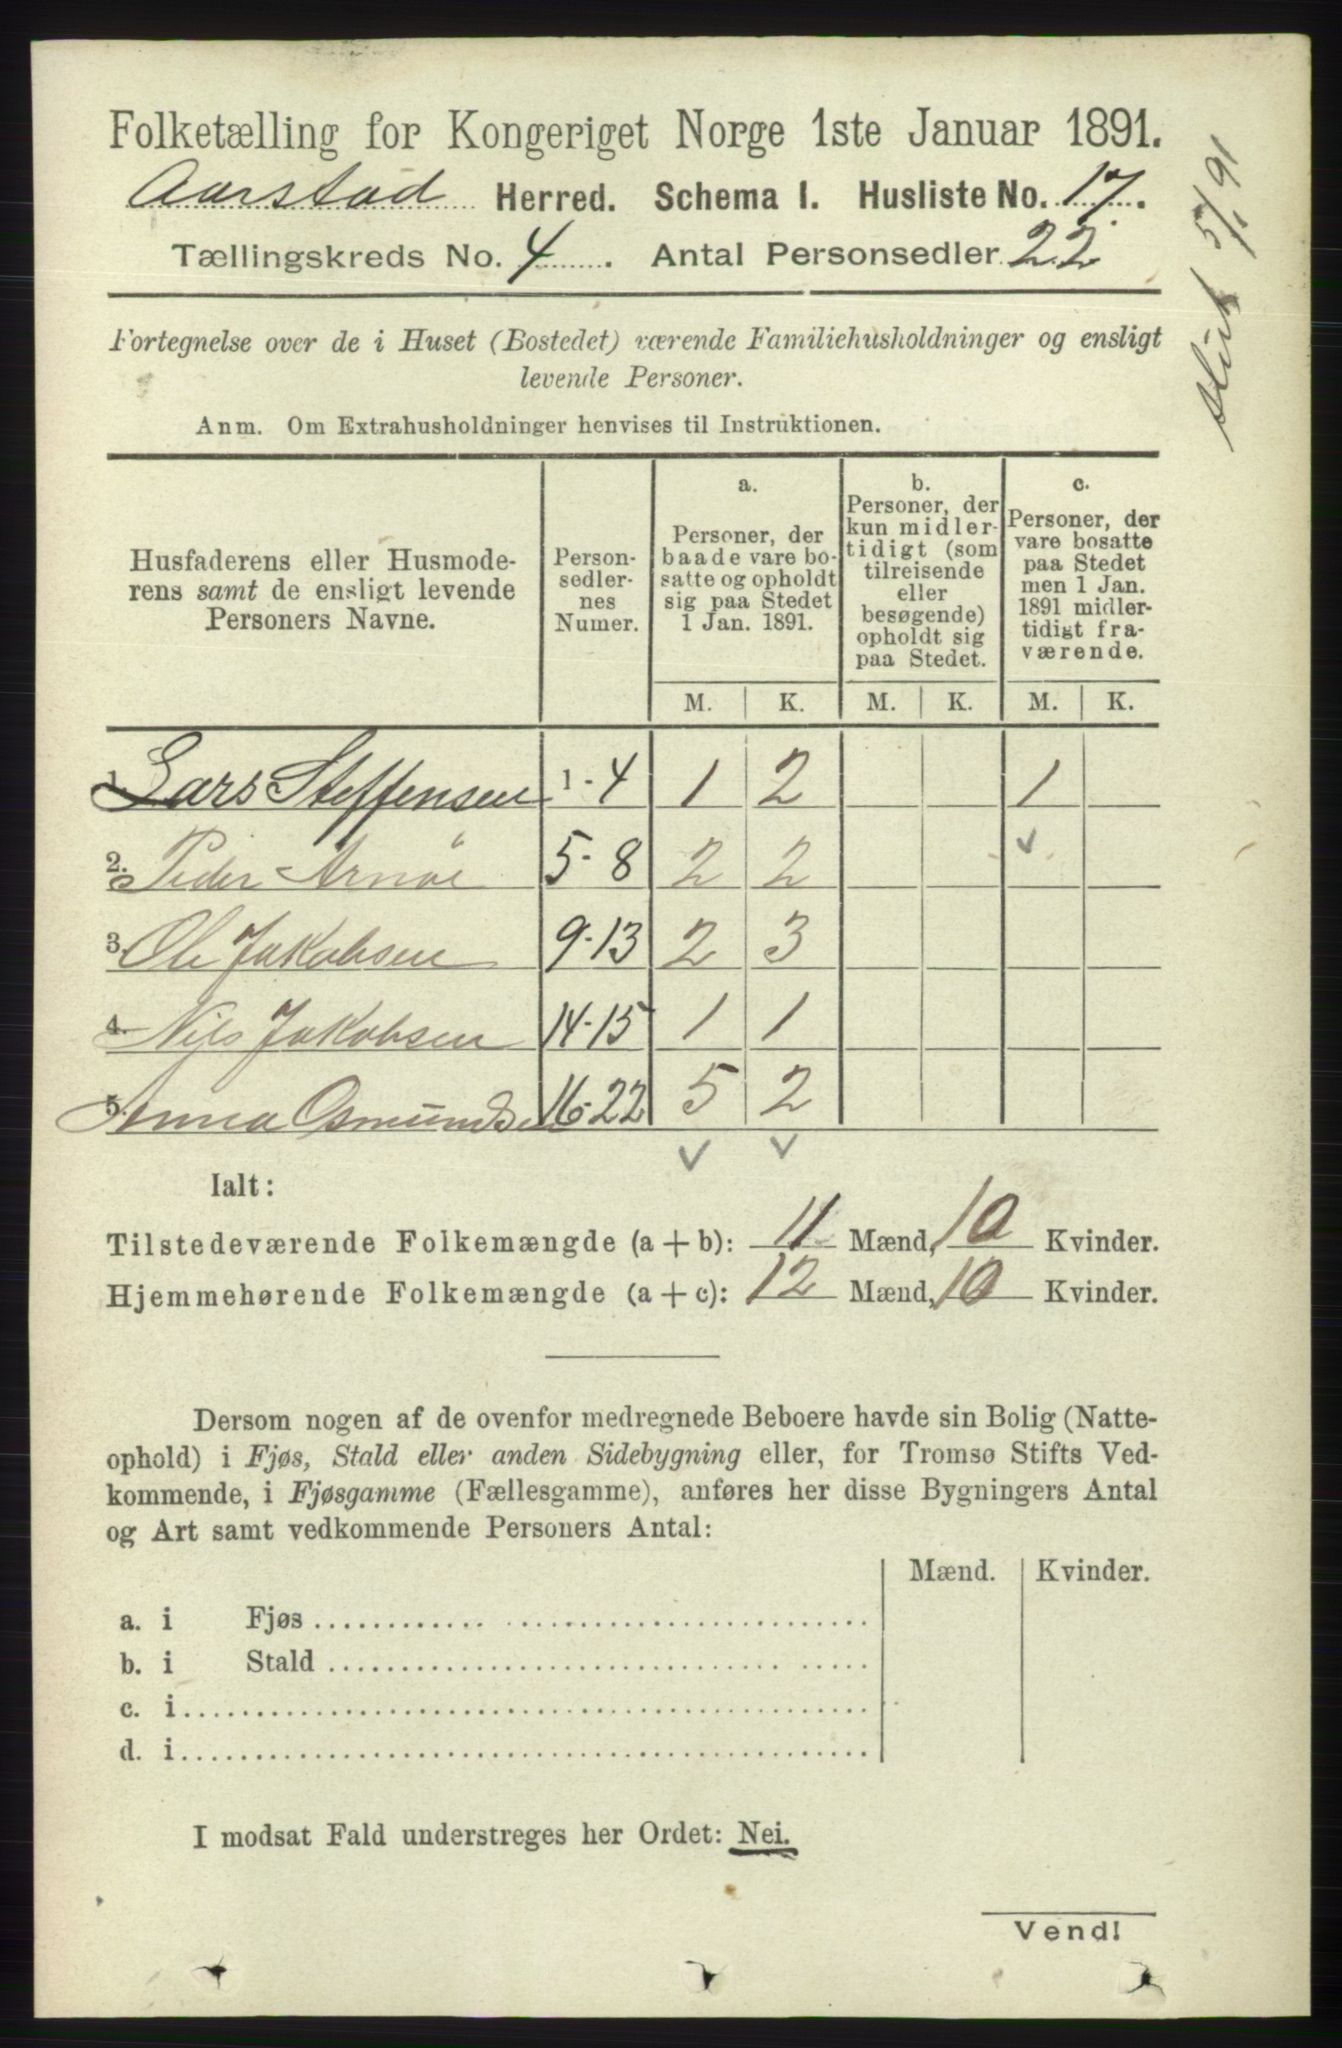 Folketælling for Kongeriget Norge 1ste Januar 1891.
Aarstad Herred. Schema I. Husliste No. 17.
Tællingskreds No. 4. Antal Personsedler 22
5/1 91
Fortegnelse over de i Huset (Bostedet) værende Familiehusholdninger og ensligt
levende Personer.
Anm. Om Extrahusholdninger henvises til Instruktionen.
Husfaderens eller Husmode-
rens samt de ensligt levende
Personers Navne.
Person-
sedler-
nes
Numer.
a.
Personer, der
baade vare bo-
satte og opholdt
sig paa Stedet
1 Jan. 1891.
b.
Personer, der
kun midler-
tidigt (som
tilreisende
eller
besøgende)
opholdt sig
paa Stedet.
c.
Personer, der
vare bosatte
paa Stedet
men 1 Jan.
1891 midler-
tidigt fra-
værende.
M. K. M. K. M. K.
1. Lars Steffensen 1-4 1 2 1
2. Peder Arnøe 5-8 2 2
3. Ole Jakobsen 9-13 2 3
4. Nils Jakobsen 14-15 1 1
5. Anna Osmundsen 16-22 5 2
Ialt:
Tilstedeværende Folkemængde (a+b): 11 Mænd, 10 Kvinder.
Hjemmehørende Folkemængde (a+c): 12 Mænd, 10 Kvinder.
Dersom nogen af de ovenfor medregnede Beboere havde sin Bolig (Natte-
ophold) i Fjøs, Stald eller anden Sidebygning eller, for Tromsø Stifts Ved-
kommende, i Fjøsgamme (Fællesgamme), anføres her disse Bygningers Antal
og Art samt vedkommende Personers Antal:
Mænd. Kvinder.
a. i Fjøs
b. i Stald
c. i
d. i
I modsat Fald understreges her Ordet: Nei.
Vend!